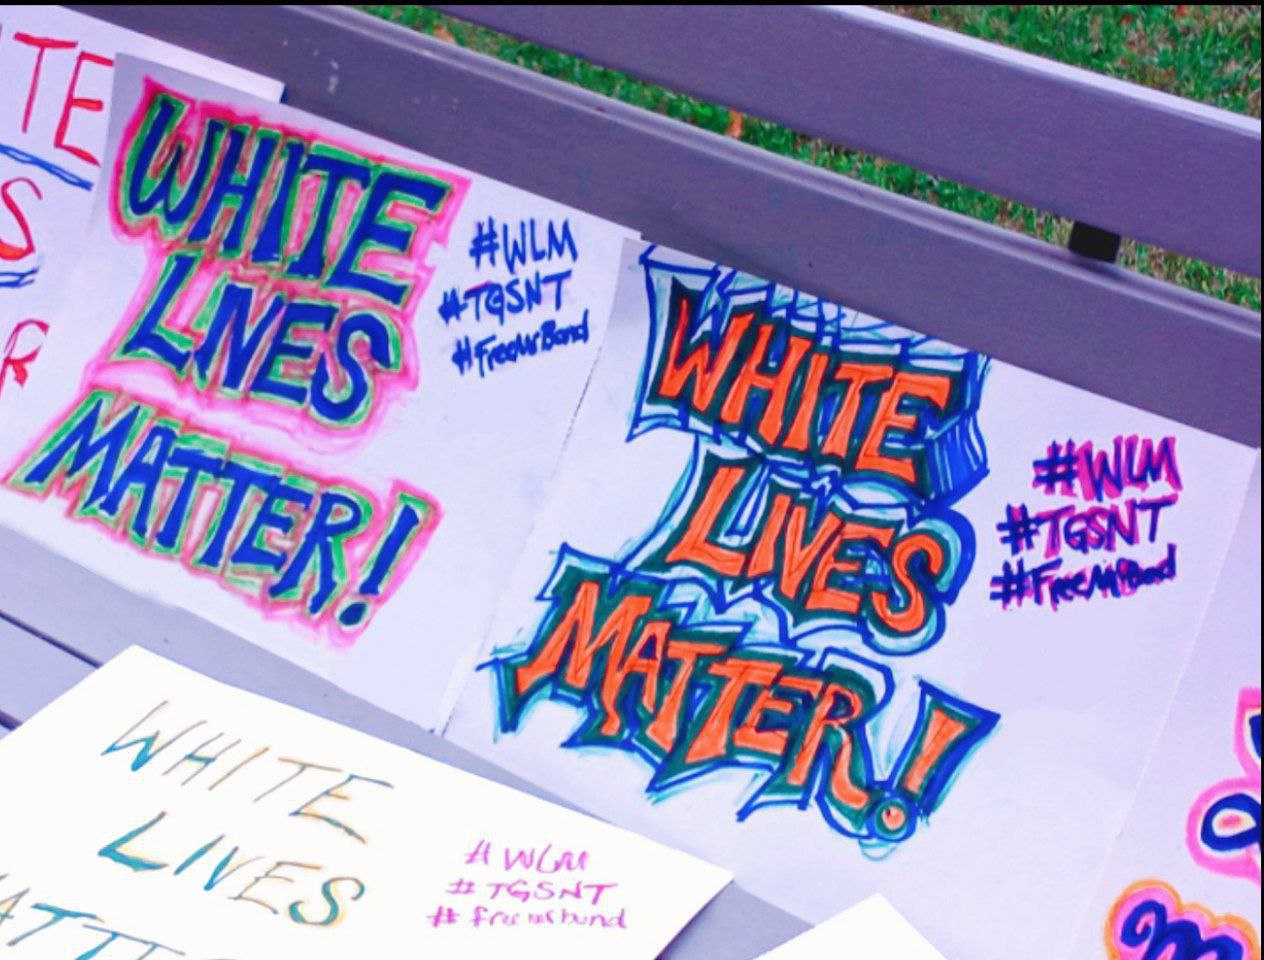 TE
S
R
WHITE
LIVES
MATTER!
#WLM
#TGSNT
#FreeMrBond
WHITE
LIVES
MATTER!
#WLM
#TGSNT
#FreeMrBond
WHITE
LIVES
ATTE
#WLM
#TGSNT
#freemrbond